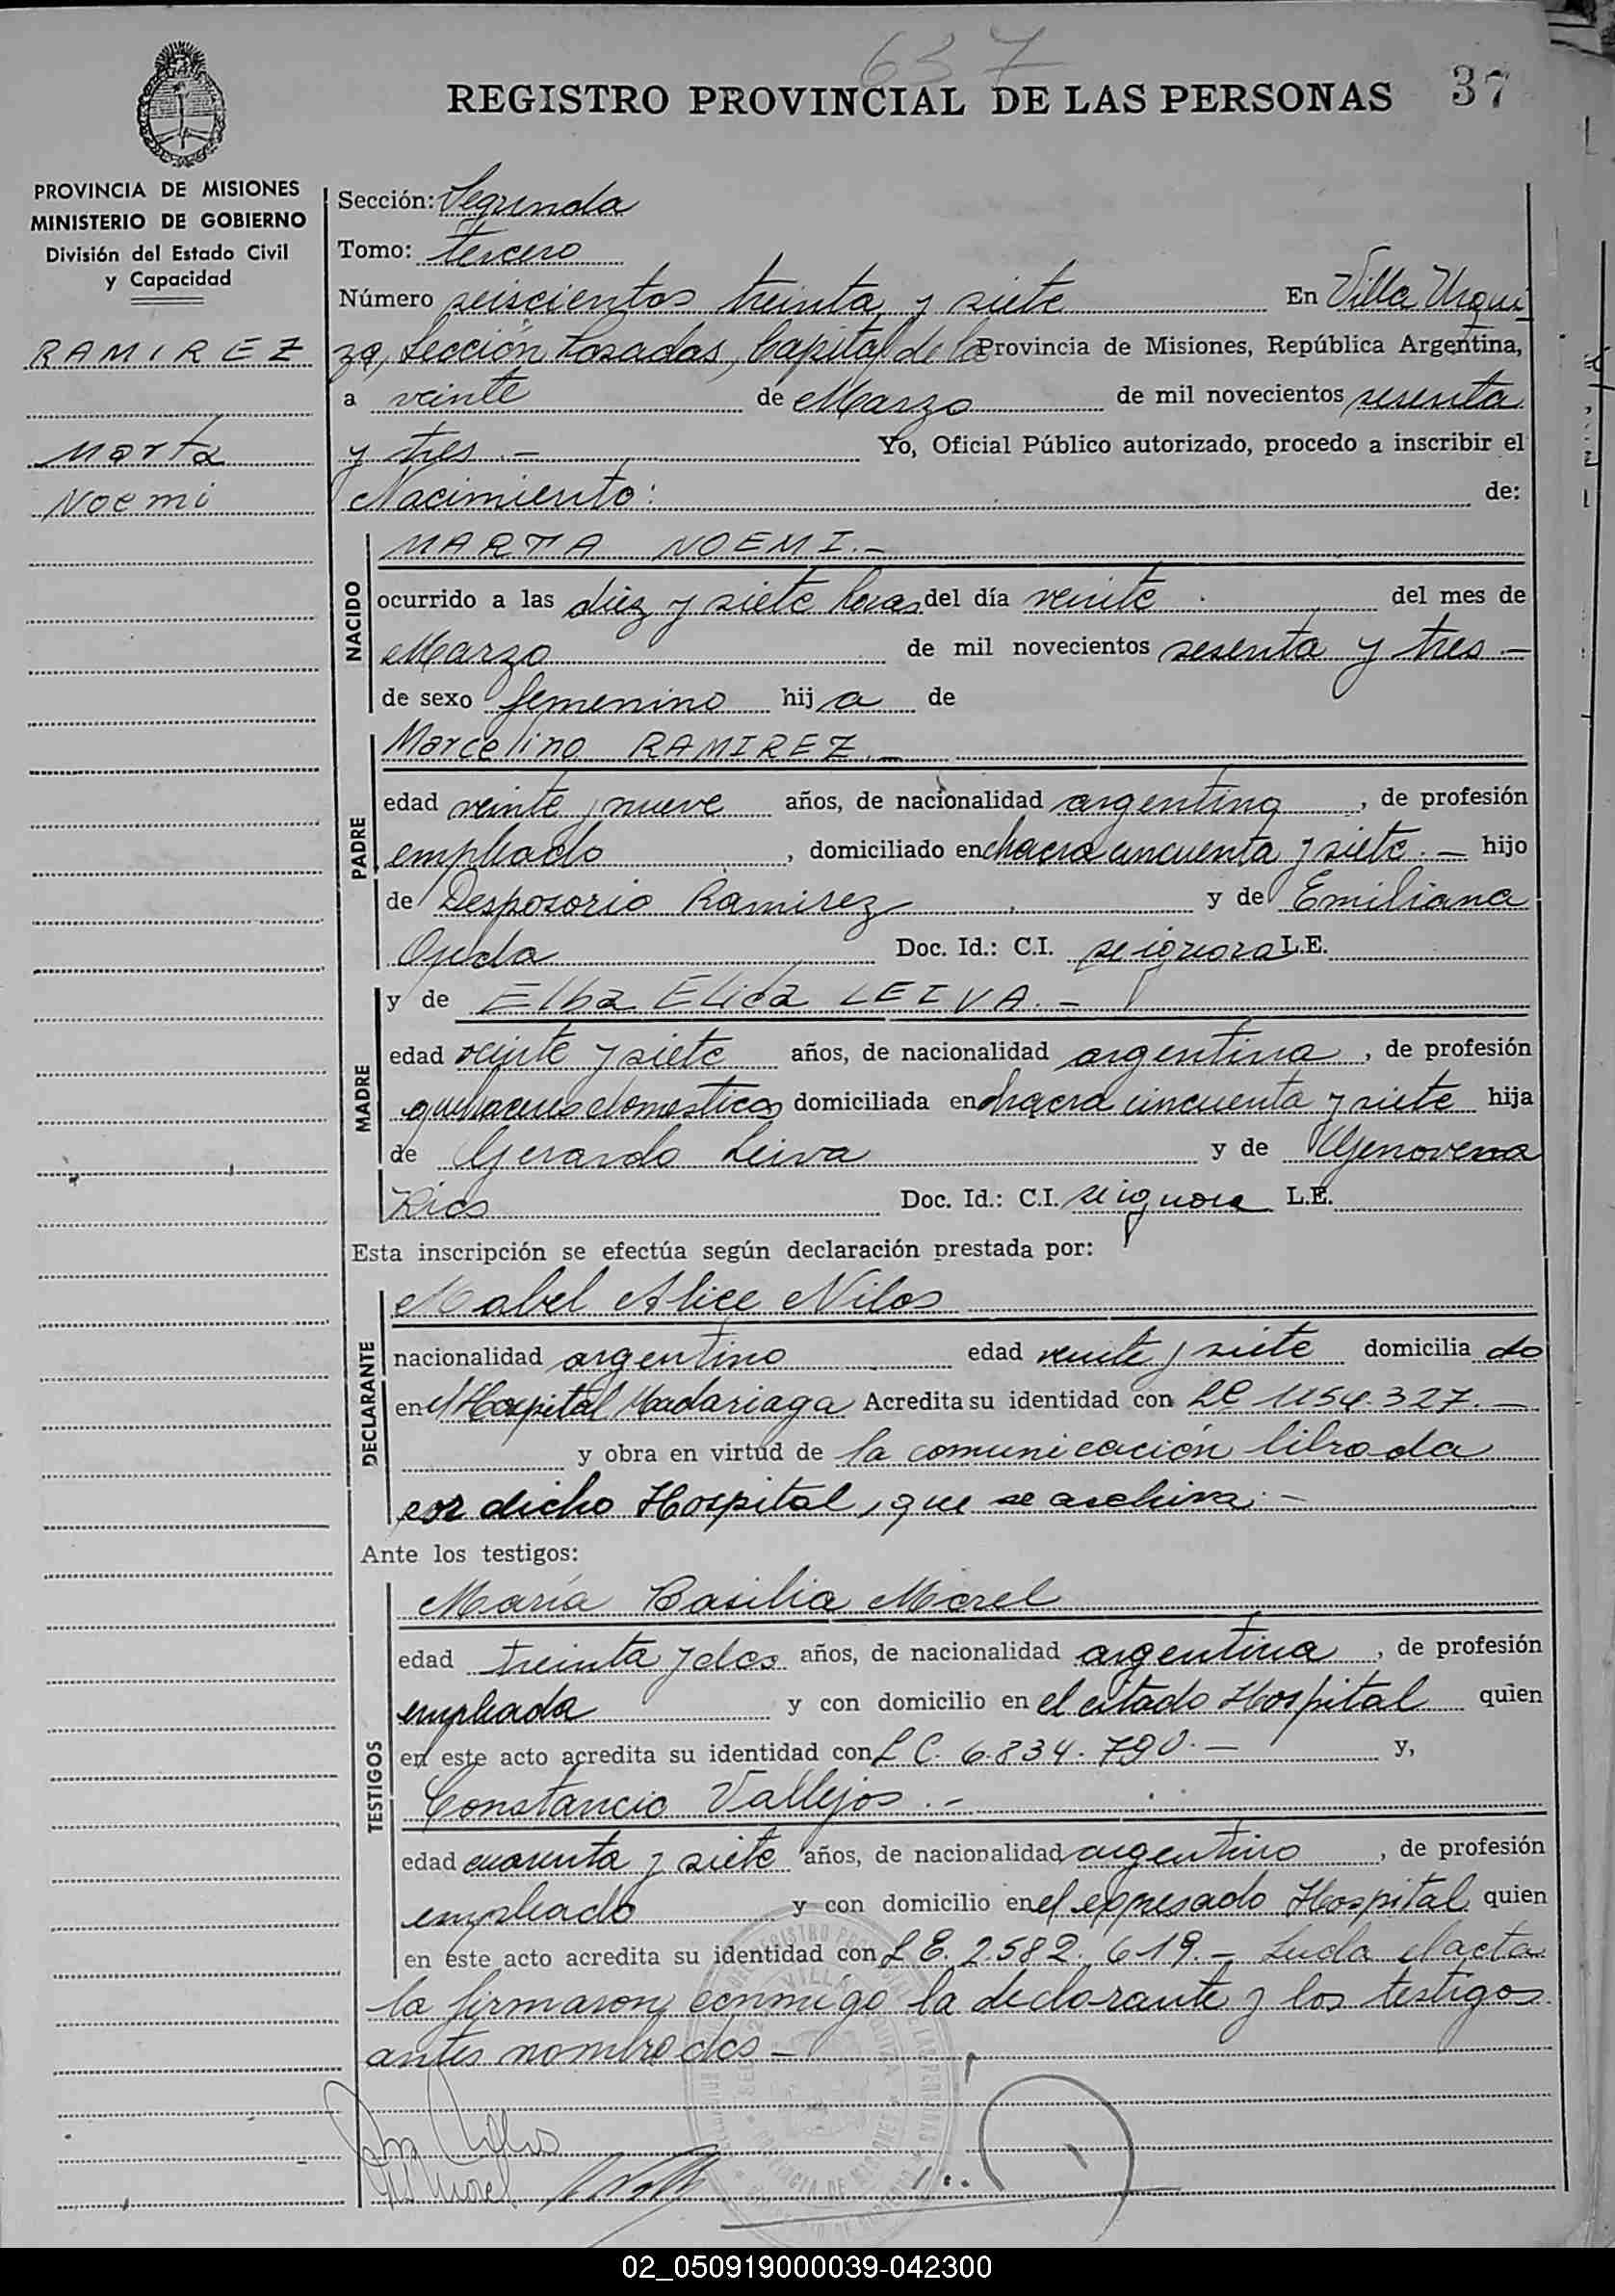 637
REGISTRO PROVINCIAL DE LAS PERSONAS 37
PROVINCIA DE MISIONES
MINISTERIO DE GOBIERNO
División del Estado Civil
y Capacidad
RAMIREZ
Marta
Noemi
Sección: Segunda
Tomo: tercero
Número seiscientos treinta y siete En Villa Urqui
za, Sección Posadas, Capital de la Provincia de Misiones, República Argentina,
a veinte de Marzo de mil novecientos sesenta
y tres.- Yo, Oficial Público autorizado, procedo a inscribir el
Nacimiento: de:
NACIDO
MARTA NOEMI.-
ocurrido a las diez y siete horas del día veinte del mes de
Marzo de mil novecientos sesenta y tres -
de sexo femenino hij a de
PADRE
Marcelino RAMIREZ.-
edad veinte y nueve años, de nacionalidad argentina, de profesión
empleado, domiciliado en chacra cincuenta y siete.- hijo
de Desposorio Ramirez y de Emiliana
Ojeda Doc. Id.: C.I. se ignora L.E.
MADRE
y de Elba Elida LEIVA.-
edad veinte y siete años, de nacionalidad argentina, de profesión
quehaceres domesticos domiciliada en chacra cincuenta y siete hija
de Gerardo Leiva y de Genoveva
Rios Doc. Id.: C.I. se ignora L.E.
Esta inscripción se efectúa según declaración prestada por:
DECLARANTE
Mabel Alice Nilos
nacionalidad argentino edad veinte y siete domicilia do
en el Hospital Madariaga Acredita su identidad con LC 1154.327.-
y obra en virtud de la comunicación librada
por dicho Hospital, que se archiva.-
Ante los testigos:
TESTIGOS
María Basilia Morel
edad treinta y dos años, de nacionalidad argentina, de profesión
empleada y con domicilio en el citado Hospital quien
en este acto acredita su identidad con L C. 6.834.790.- y,
Constancio Vallejos.-
edad cuarenta y siete años, de nacionalidad argentino, de profesión
empleado y con domicilio en el expresado Hospital quien
en este acto acredita su identidad con L E. 2.582.619.- Leida el acta
la firmaron conmigo la declarante y los testigos
antes nombrados -
02_050919000039-042300